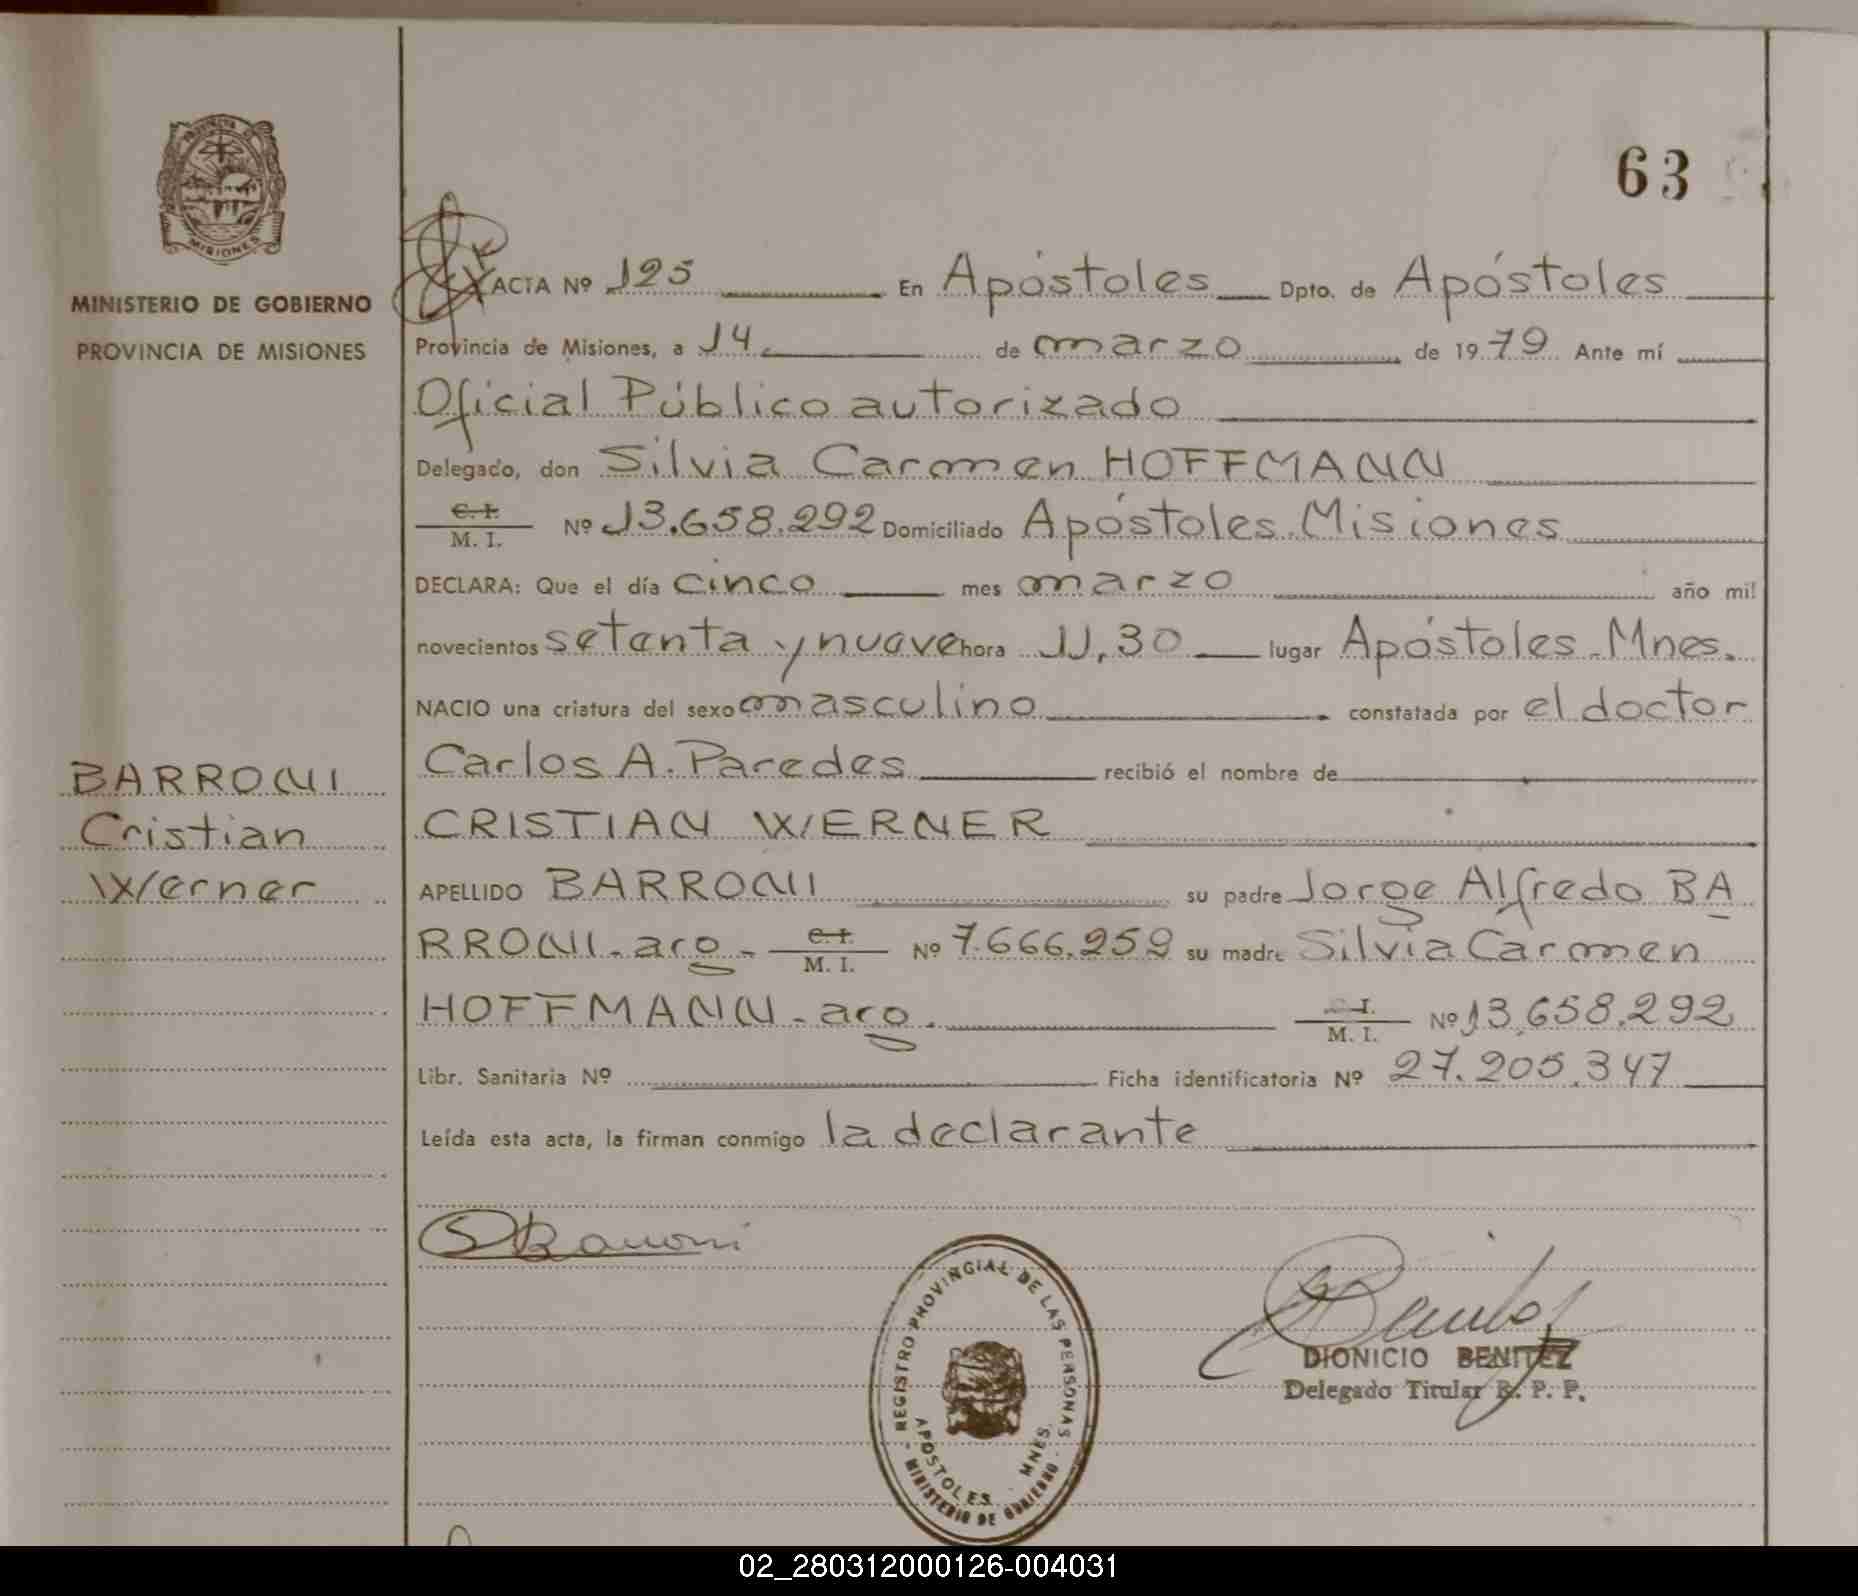 63
PROVINCIA DE
MISIONES
MINISTERIO DE GOBIERNO
PROVINCIA DE MISIONES
ACTA Nº 125 En Apóstoles Dpto. de Apóstoles
Provincia de Misiones, a 14 de marzo de 1979 Ante mí
Oficial Público autorizado
Delegado, don Silvia Carmen HOFFMANN
C. I.
M. I. Nº 13.658.292 Domiciliado Apóstoles. Misiones
DECLARA: Que el día cinco mes marzo año mil
novecientos setenta y nueve hora 11,30 lugar Apóstoles. Mnes.
NACIO una criatura del sexo masculino constatada por el doctor
Carlos A. Paredes recibió el nombre de
CRISTIAN WERNER
APELLIDO BARRONI su padre Jorge Alfredo BA
RRONI - arg - C. I. M. I. Nº 7.666.259 su madre Silvia Carmen
HOFFMANN - arg. I. M. I. Nº 13.658.292
Libr. Sanitaria Nº Ficha identificatoria Nº 27.205.347
Leída esta acta, la firman conmigo la declarante
BARRONI
Cristian
Werner
SBarroni
REGISTRO PROVINCIAL DE LAS PERSONAS
APOSTOLES MNES.
MINISTERIO DE GOBIERNO
Benitez
DIONICIO BENITEZ
Delegado Titular R. P. P.
02_280312000126-004031